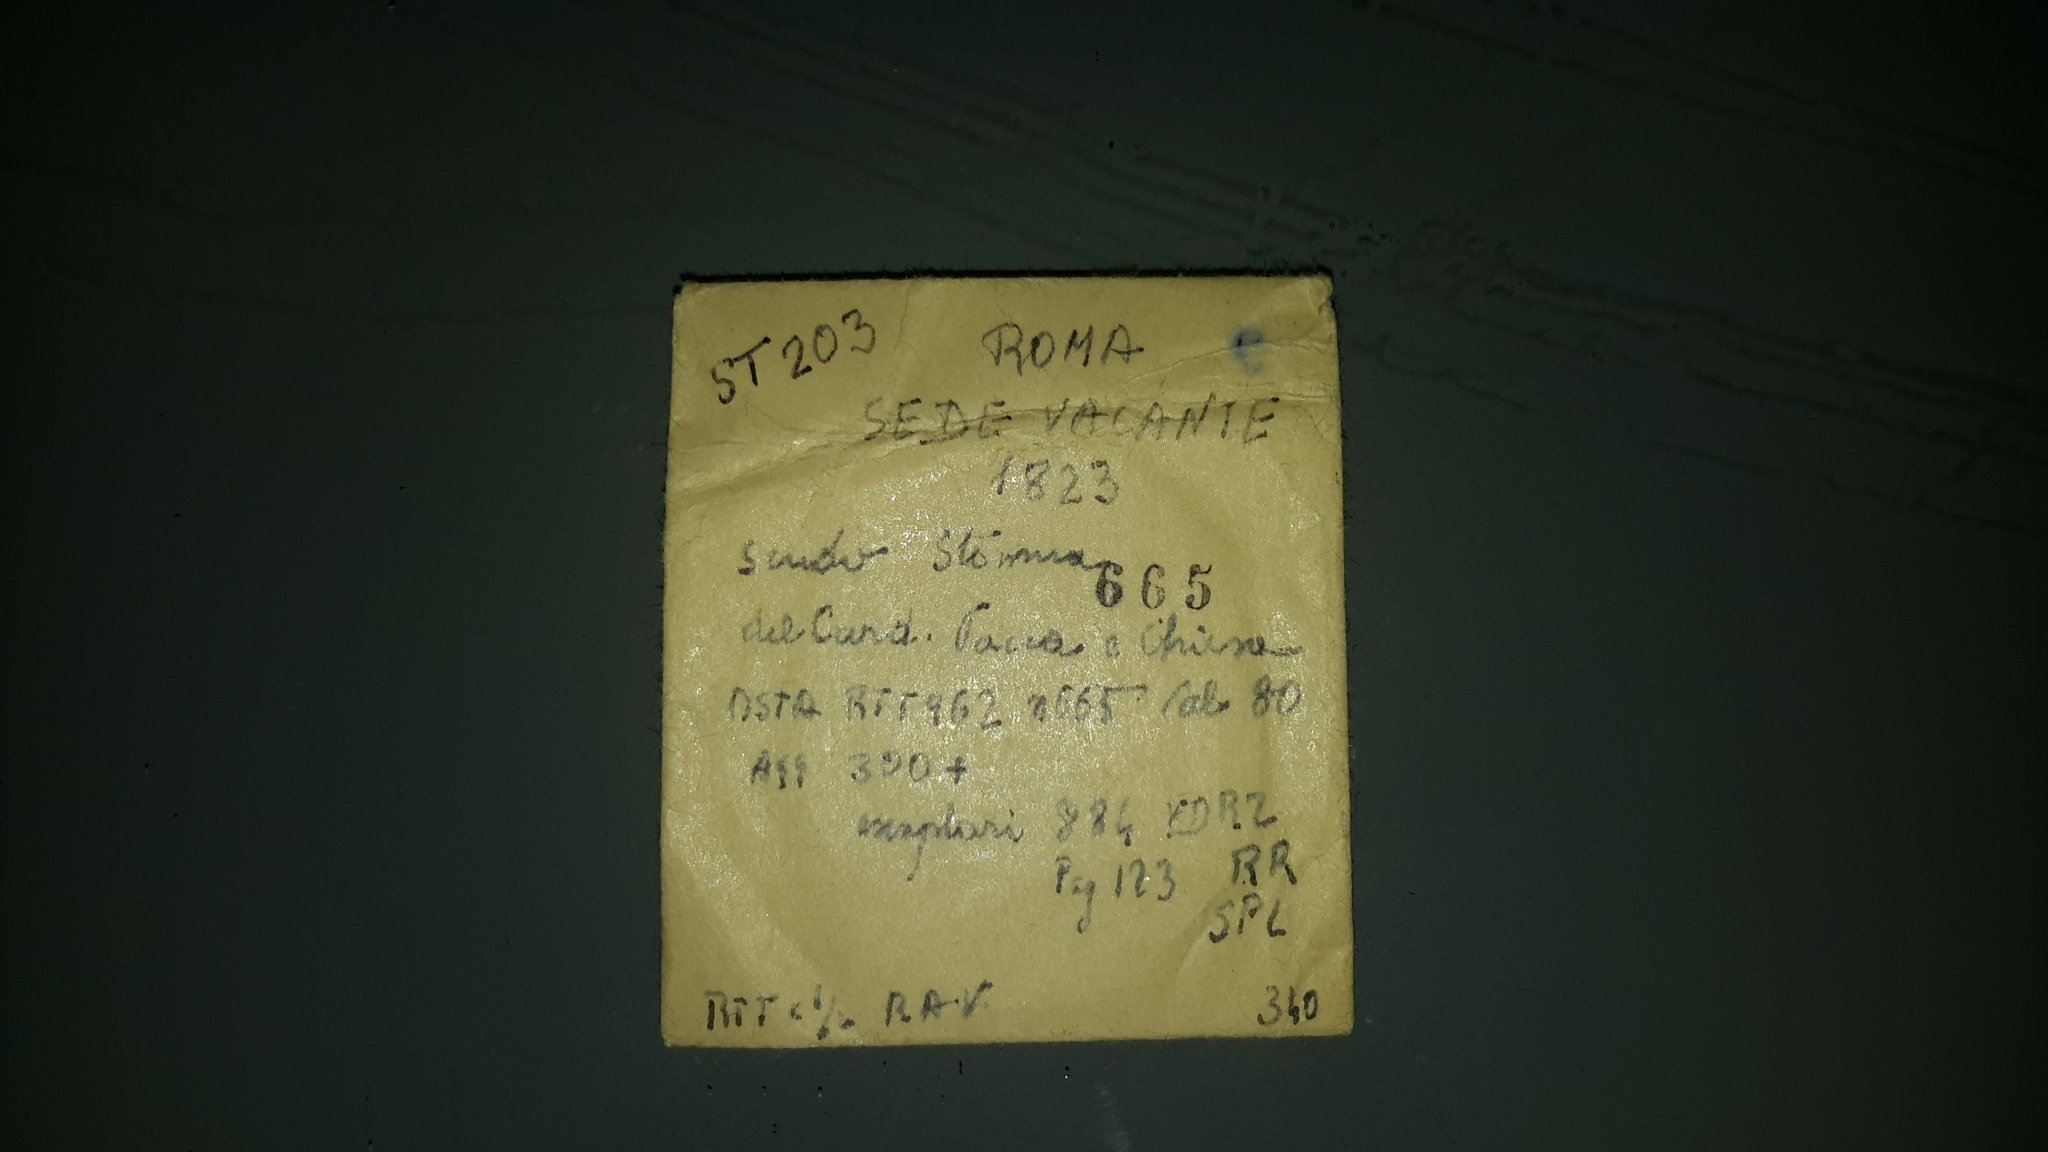 ST 203 ROMA
SEDE VACANTE
1823
scudo Stemma
665
del Card. Pacca e Chiesa
ASTA RTT 962 n 665 Val 80
Agg 390 +
esemplari 884
Pag 123 RR
SPL
RTT R.A.V. 340